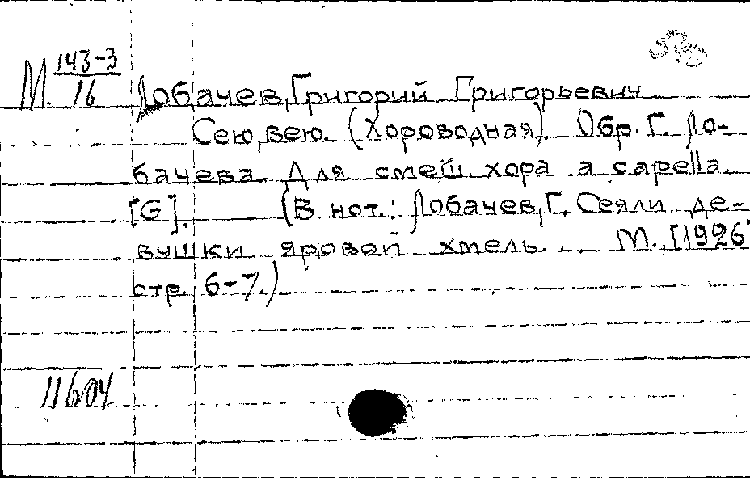 М 143-3/16
Лобачев, Григорий Григорьевич
Сею, вею. (Хороводная). Обр. Г. Ло-
бачева. Для смеш. хора a capella.
[G]. (В нот.: Лобачев, Г. Сеяли де-
вушки яровой хмель... М. [1926]
стр. 6-7.)
11604